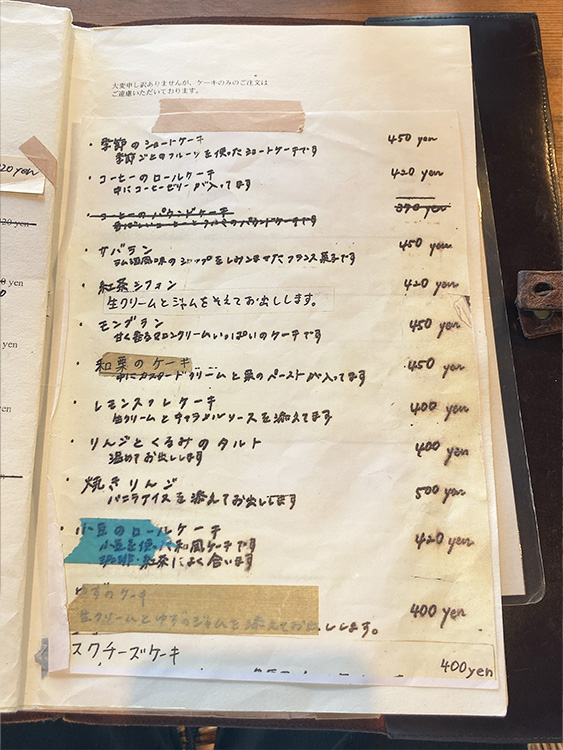 大変申し訳ありませんが、ケーキのみのご注文は
ご遠慮いただいております。
・季節のショートケーキ 450 yen
季節ごとのフルーツを使ったショートケーキです
・コーヒーのロールケーキ 420 yen
中にコーヒーゼリーが入ってます
・コーヒーのパウンドケーキ 390 yen
・サバラン 450 yen
ラム酒風味のシロップをしみこませたフランス菓子です
・紅茶シフォン 420 yen
生クリームとジャムをそえてお出しします。
・モンブラン 450 yen
甘く香るマロンクリームいっぱいのケーキです
・和栗のケーキ 450 yen
中にカスタードクリームと栗のペーストが入ってます
・レモンスフレケーキ 400 yen
生クリームとキャラメルソースを添えてます
・りんごとくるみのタルト 400 yen
温めてお出しします
・焼きりんご 500 yen
バニラアイスを添えてお出しします
・小豆のロールケーキ 420 yen
小豆を使った和風ケーキです
珈琲・紅茶によく合います
ゆずのケーキ 400 yen
生クリームとゆずのジャムを添えてお出しします。
スクチーズケーキ 400yen
20 yen
20 yen
yen
yen
yen